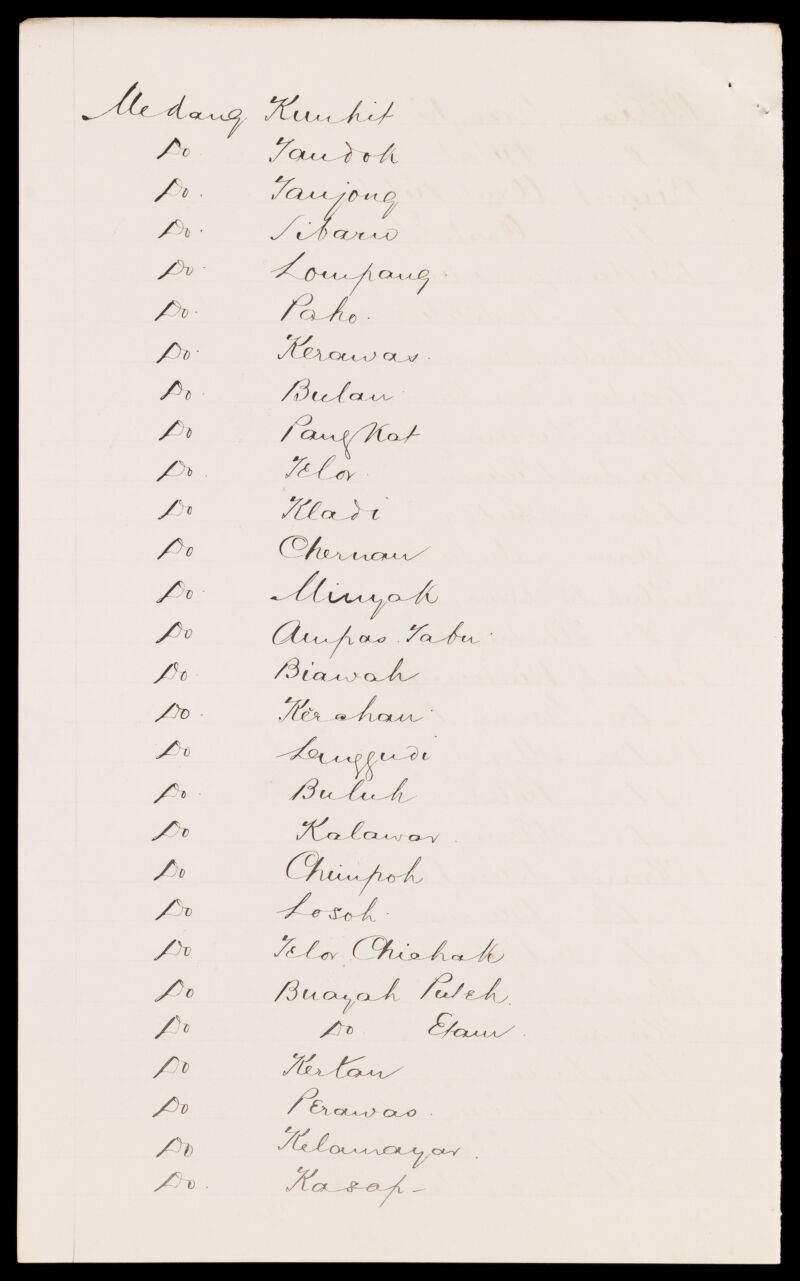 Medang Kunhit
Do. Tandok
Do. Tanjong
Do. Sibaru
Do. Lompang
Do. Paho.
Do. Kerawas.
Do. Bulan
Do Pangkat
Do. Telor.
Do Kladi
Do Chernan
Do. Minyak
Do Ampas Tabu.
Do. Biawah
Do. Kĕrchan
Do Lenggudi
Do. Buluh
Do Kalawar.
Do Chimpoh
Do Losoh.
Do Telor Chichak
Do Buayah Puteh.
Do Do. Etam.
Do Kerkan
Do Perawas.
Do Kelamayar.
Do. Kasap-